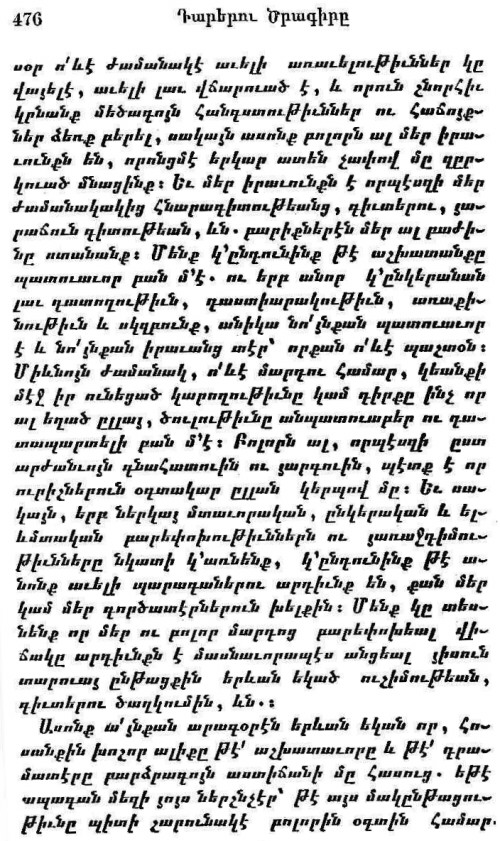 476
Դարերու Ծրագիրը
սօր ո՛ևէ ժամանակէ աւելի առաւելութիւններ կը
վայելէ, աւելի լաւ վճարուած է, և որուն շնորհիւ
կրնանք մեծագոյն հանգստութիւններ ու հաճոյք-
ներ ձեռք բերել, սակայն ասոնք բոլորն ալ մեր իրա-
ւունքն են, որոնցմէ երկար ատեն չափով մը զըր-
կուած մնացինք։ Եւ մեր իրաւունքն է որպէսզի մեր
ժամանակակից հնարագիտութեանց, գիւտերու, յա-
րաճուն գիտութեան, ևն. բարիքներէն մեր ալ բաժի-
նը ստանանք։ Մենք կ՚ընդունինք թէ աշխատանքը
պատուաւոր բան մ՚է. ու երբ անոր կ՚ընկերանան
լաւ դատողութիւն, դաստիարակութիւն, առաքի-
նութիւն և սկզբունք, անիկա նո՛յնքան պատուաւոր
է և նո՛յնքան իրաւանց տէր՝ որքան ո՛ևէ պաշտօն։
Միևնոյն ժամանակ, ո՛ևէ մարդու համար, կեանքի
մէջ իր ունեցած կարողութիւնը կամ դիրքը ինչ որ
ալ եղած ըլլայ, ծուլութիւնը անպատուաբեր ու դա-
տապարտելի բան մ՚է։ Բոլորն ալ, որպէսզի ըստ
արժանւոյն գնահատուին ու յարգուին, պէտք է որ
ուրիշներուն օգտակար ըլլան կերպով մը։ Եւ սա-
կայն, երբ ներկայ մտաւորական, ընկերական և ել-
ևմտական բարեփոխութիւններն ու յառաջդիմու-
թիւնները նկատի կ՚առնենք, կ՚ընդունինք թէ ա-
նոնք աւելի պարագաներու արդիւնք են, քան մեր
կամ մեր գործատէրներուն խելքին։ Մենք կը տես-
նենք որ մեր ու բոլոր մարդոց բարեփոխեալ վի-
ճակը արդիւնքն է մասնաւորապէս անցեալ յիսուն
տարուայ ընթացքին երևան եկած ուշիմութեան,
գիւտերու ծաղկումին, ևն.։
Ասոնք ա՛յնքան արագօրէն երևան եկան որ, հո-
սանքին խոշոր ալիքը թէ՛ աշխատաւորը և թէ՛ դրա-
մատէրը բարձրագոյն աստիճանի մը հասուց. եթէ
ապագան մեզի յոյս ներշնչէր՝ թէ այս մակընթացու-
թիւնը պիտի շարունակէ բոլորին օգտին համար.